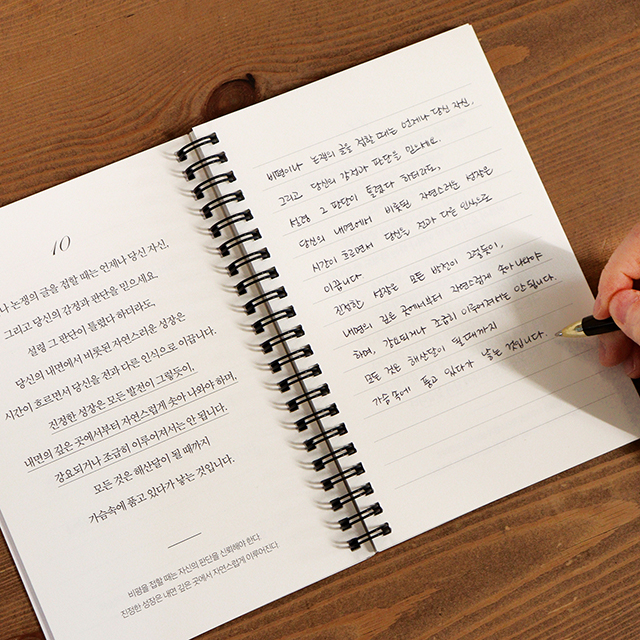 10
나 논쟁의 글을 접할 때는 언제나 당신 자신,
그리고 당신의 감정과 판단을 믿으세요
설령 그 판단이 틀렸다 하더라도
당신의 내면에서 비롯된 자연스러운 성장은
시간이 흐르면서 당신을 전과 다른 인식으로 이끕니다.
진정한 성장은 모든 발전이 그렇듯이,
내면의 깊은 곳에서부터 자연스럽게 솟아 나와야 하며,
강요되거나 조급히 이루어져서는 안 됩니다.
모든 것은 해산달이 될 때까지
가슴속에 품고 있다가 낳는 것입니다.
비평을 접할 때는 자신의 판단을 신뢰해야 한다.
진정한 성장은 내면 깊은 곳에서 자연스럽게 이루어진다
비평이나 논쟁의 글을 접할 때는 언제나 당신 자신,
그리고 당신의 감정과 판단을 믿으세요.
설령 그 판단이 틀렸다 하더라도,
당신의 내면에서 비롯된 자연스러운 성장은
시간이 흐르면서 당신을 전과 다른 인식으로
이끕니다
진정한 성장은 모든 발전이 그렇듯이,
내면의 깊은 곳에서부터 자연스럽게 솟아 나와야
하며, 강요되거나 조급히 이루어져서는 안 됩니다.
모든 것은 해산달이 될 때까지
가슴 속에 품고 있다가 낳는 것입니다.